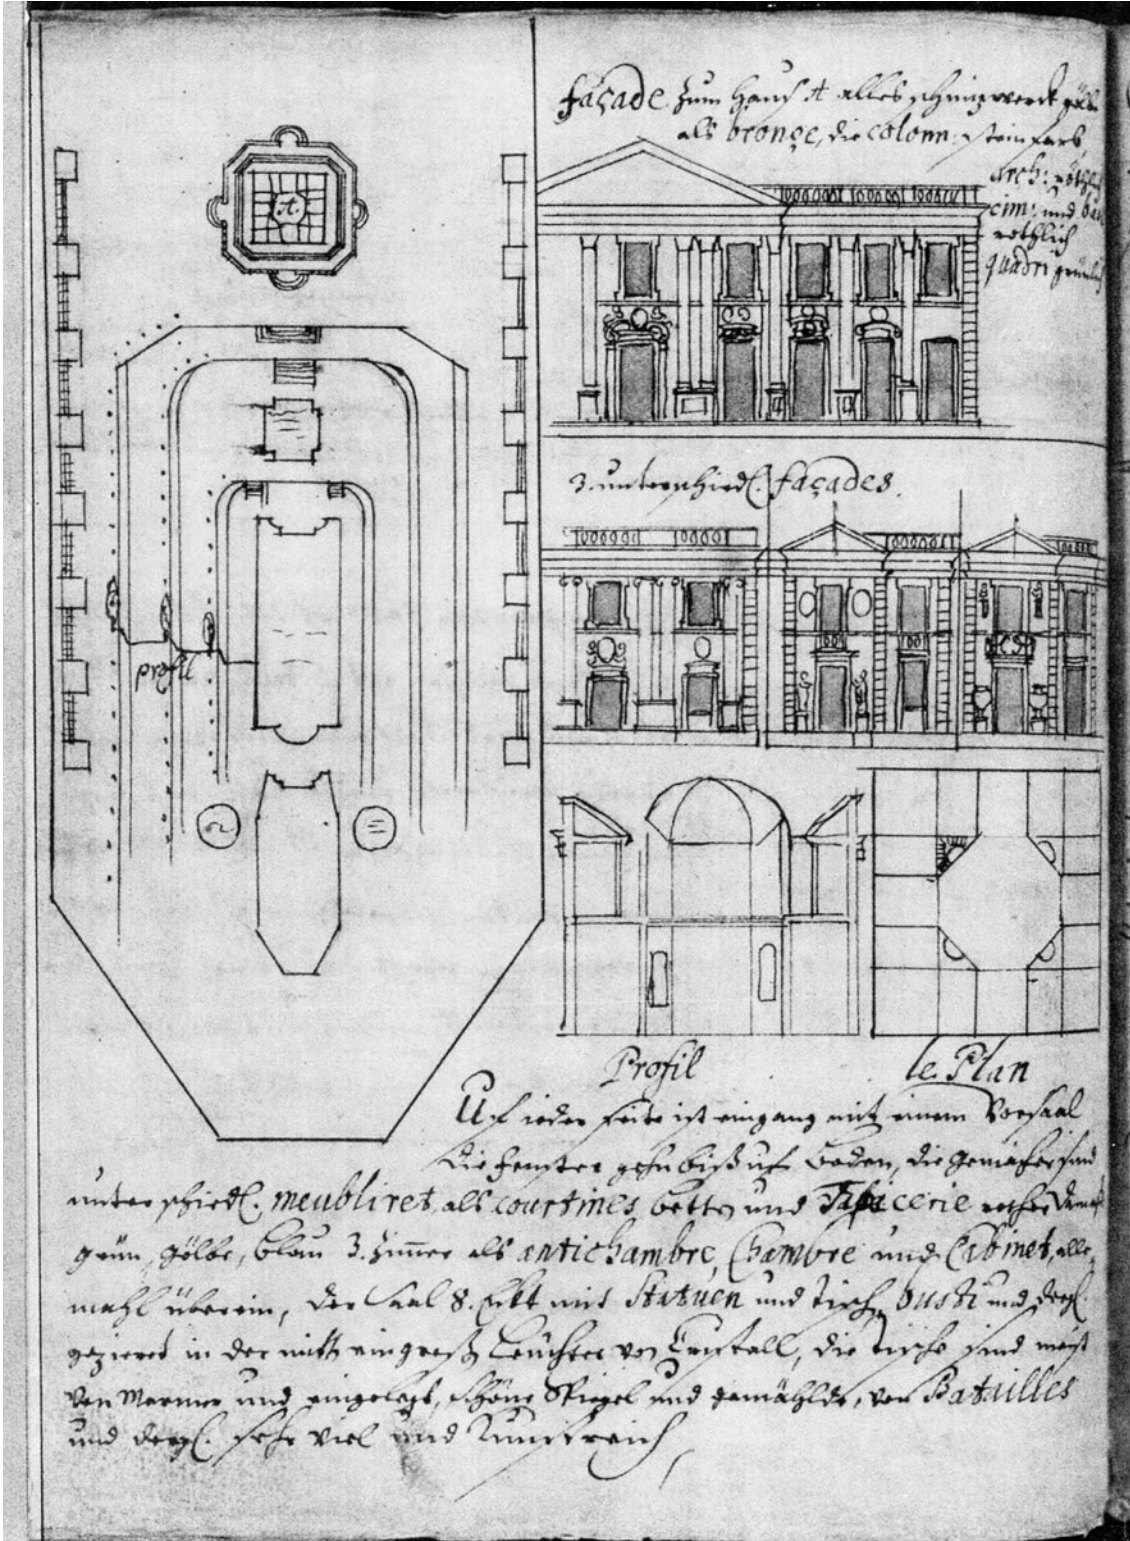 façade zum Hauß A alles schnizwerck gelb
als bronçe, die colonn: steinfarb,
arch: röthl
cim: und
röthlich
quadri grünlich
A.
3. unterschiedl. façades.
profil
Profil
le Plan
Uf ieder seite ist eingang mit einem Vorsaal
die fenster gehn biß uf boden, die gemächer sind
unterschiedl. meubliret, als courtines bette und Tapicerie rother damast
grün, gölbe, blau 3. Zimmer als antichambre, Chambre und Cabinet, alle
mahl überein, der Saal 8. Eckt mit Statuen und tisch, busti und dergl.
gezieret in der mitte ein groß Leüchter von Cristall, die tische sind meist
von Marmor und eingelegt, schöne Spiegel und gemählde, von Batailles
und dergl. sehr viel und Kunstreich